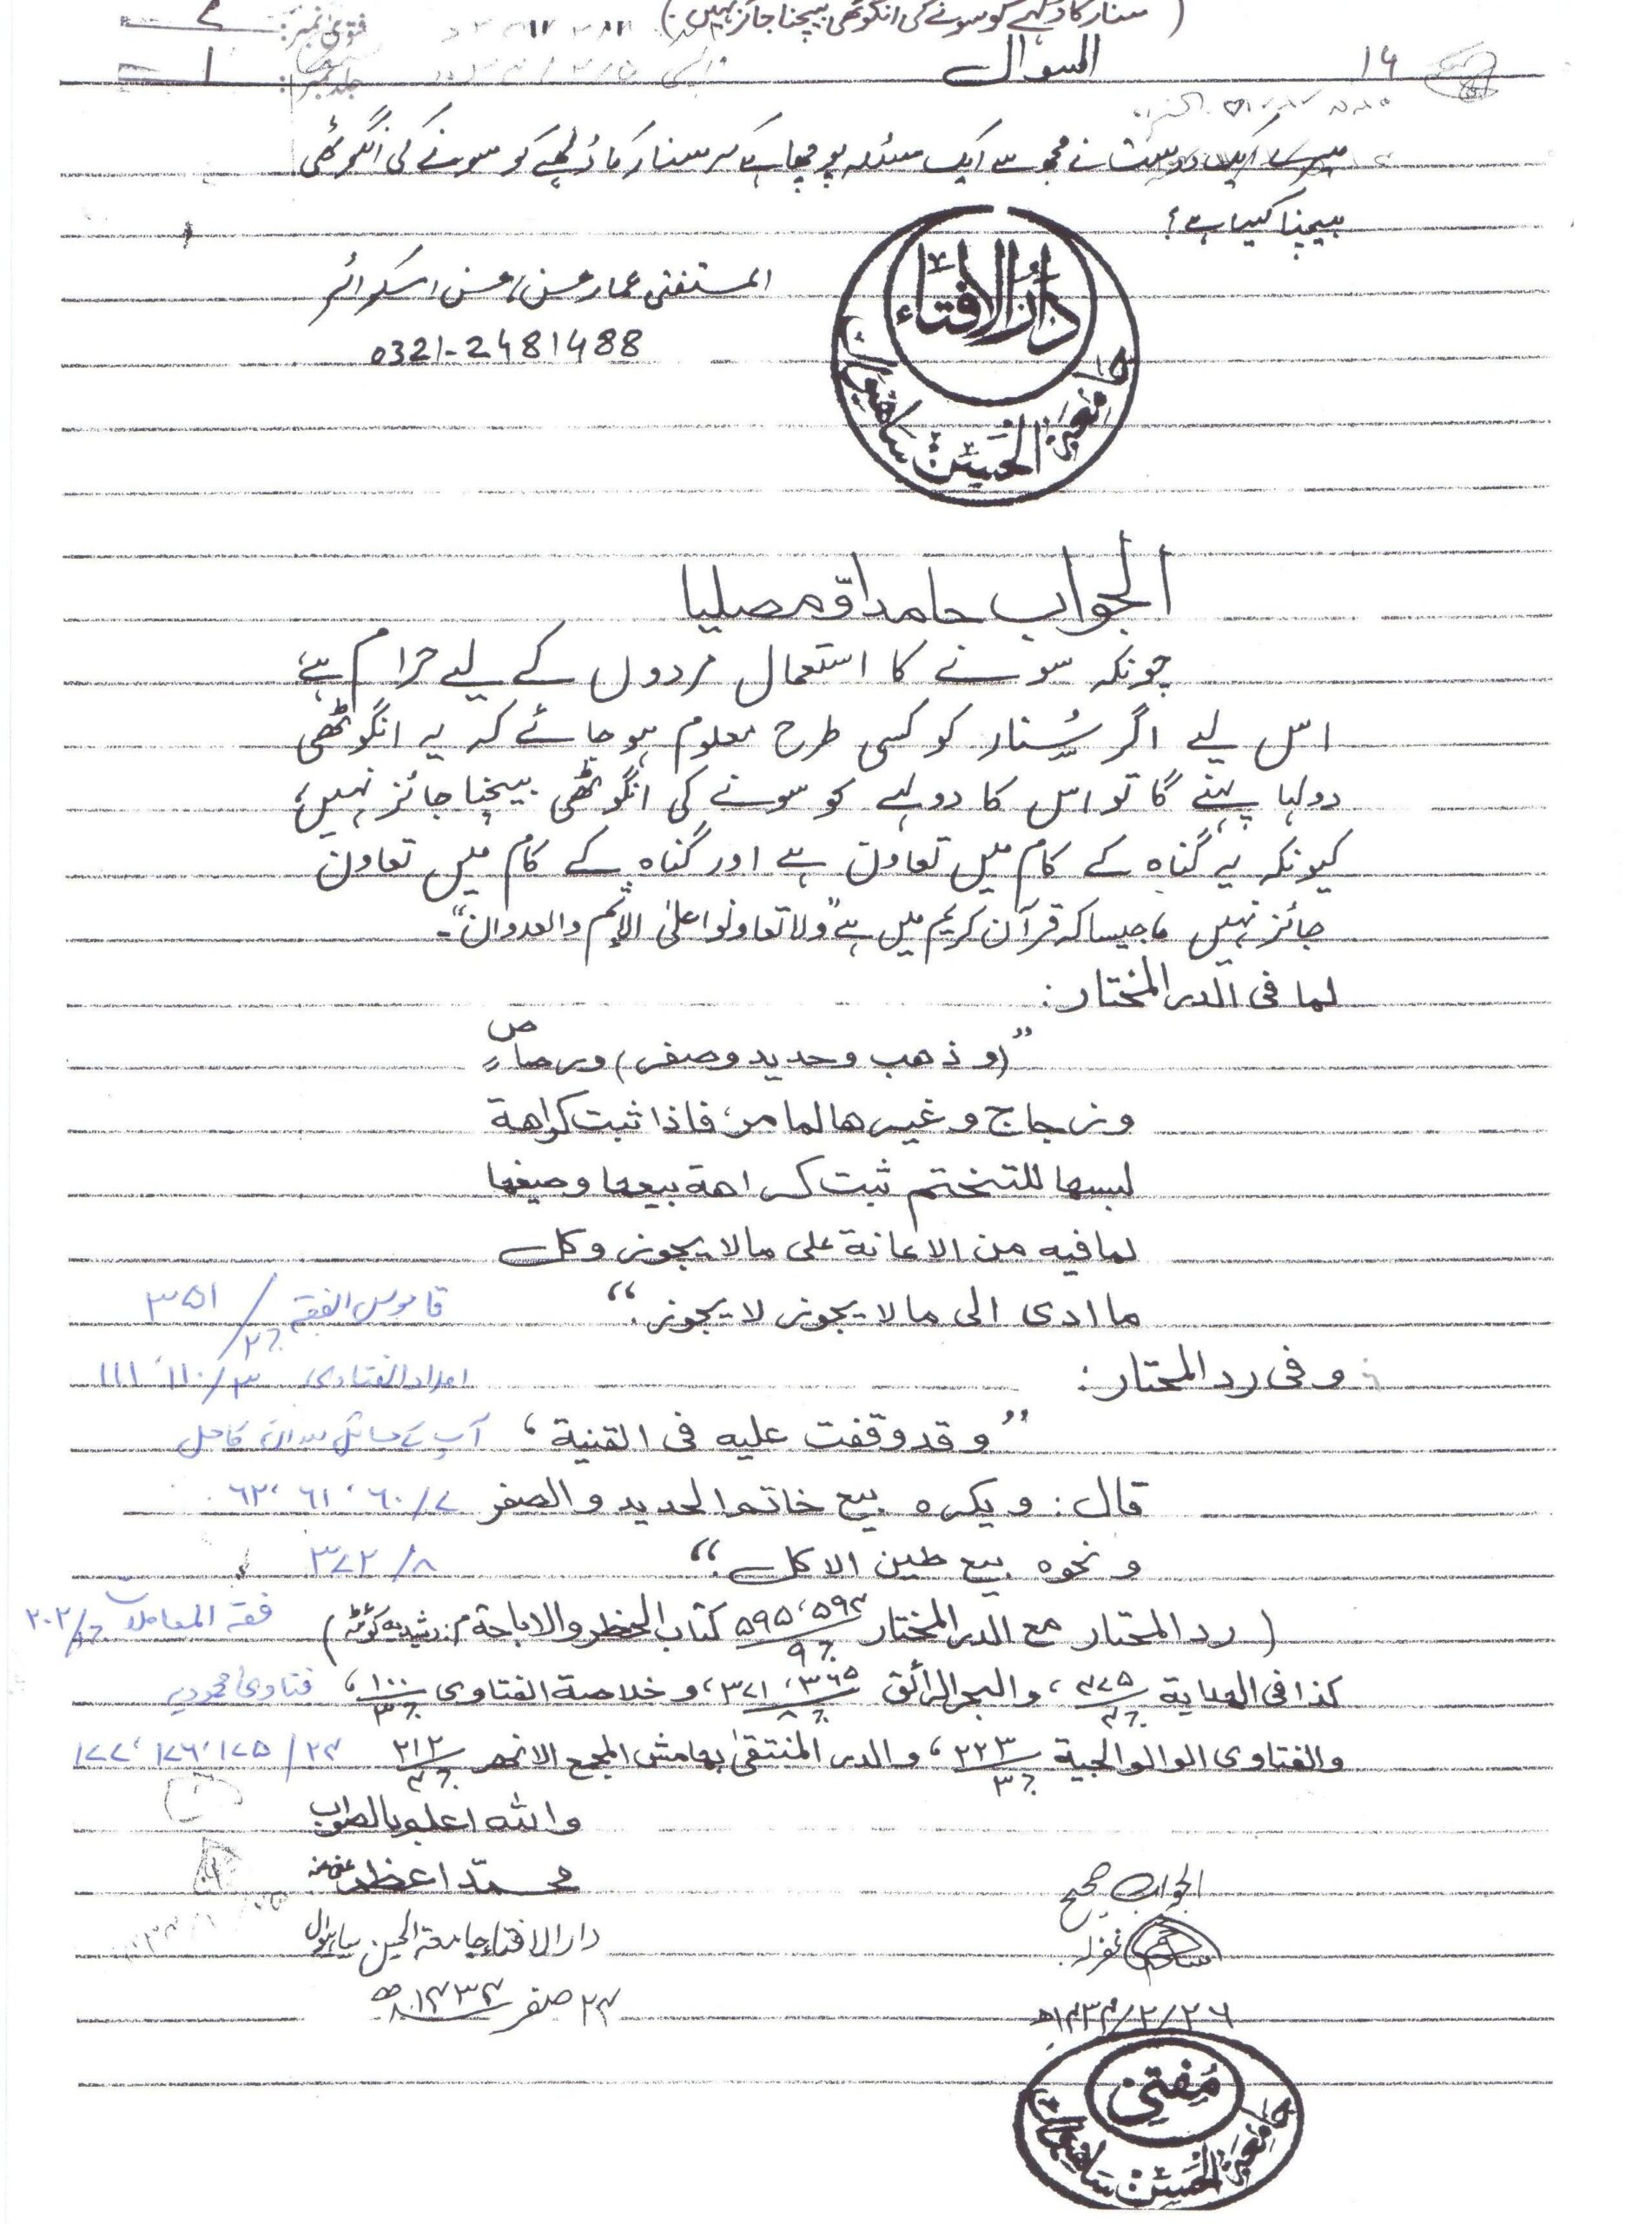 (سنار کا دولہے کو سونے کی انگوٹھی بیچنا جائز نہیں)
فتویٰ نمبر:
السوال
جلد نمبر: ١
میرے ایک دوست نے مجھ سے ایک مسئلہ پوچھا ہے کہ سنار کا دُلہے کو سونے کی انگوٹھی
بیچنا کیسا ہے؟
المستفتی عمار حسن، حسن اسکوائر
0321-2481488
دَارُ الاِفتَاء
جامعۃ الحسن ساھیوال
الجواب حامداً و مصلیا
چونکہ سونے کا استعمال مردوں کے لیے حرام ہے،
اس لیے اگر سُنار کو کسی طرح معلوم ہو جائے کہ یہ انگوٹھی
دولہا پہنے گا تو اس کا دولہے کو سونے کی انگوٹھی بیچنا جائز نہیں،
کیونکہ یہ گناہ کے کام میں تعاون ہے اور گناہ کے کام میں تعاون
جائز نہیں، جیسا کہ قرآن کریم میں ہے ”ولا تعاونوا علیٰ الإثم والعدوان“۔
لما فی الدر المختار:
”(و ذهب وحديد وصفر) ورصاص
وزجاج وغيرها لما مر، فاذا ثبت كراهة
لبسها للتختم ثبت كراهة بيعها وصيغها
لما فيه من الاعانة على ما لا يجوز وكل
ما ادى الى ما لا يجوز لا يجوز.“
قاموس الفقہ ۳۵۱/۲
و فی رد المحتار:
امداد الفتاوی ۳/۱۱۰، ۱۱۱
”وقد وقفت عليه فى القنية،
آپ کے مسائل اور ان کا حل
قال: ويكره بيع خاتم الحديد والصفر
۷/۶۰، ۶۱، ۶۲
ونحوه بيع طين الاكل.“
۸/۳۷۲
(رد المحتار مع الدر المختار ۵۹۴، ۵۹۵/۹ کتاب الحظر والاباحة، ط: رشیدیہ کوئٹہ)
فقہ المعاملات ۲۰۲/
کذا فی الهداية ۴۷۵/۴، والبحر الرائق ۳۶۵، ۳۷۱/۸، وخلاصة الفتاوى ۱۰۰/۳،
فتاوی محمودیہ
والفتاوى الوالوالجية ۲۲۳/۳، والدر المنتقىٰ بهامش المجمع الانهر ۲۱۲/۴
۲۴/۱۷۵، ۱۷۶، ۱۷۷
والله اعلم بالصواب
محمد اعظم عفی عنہ
دار الافتاء جامعۃ الحسن ساہیوال
۲۴ صفر ۱۴۳۴ھ
الجواب صحیح
۲۶/۲/۱۴۳۴ھ
مُفتی
جامعۃ الحسن ساھیوال